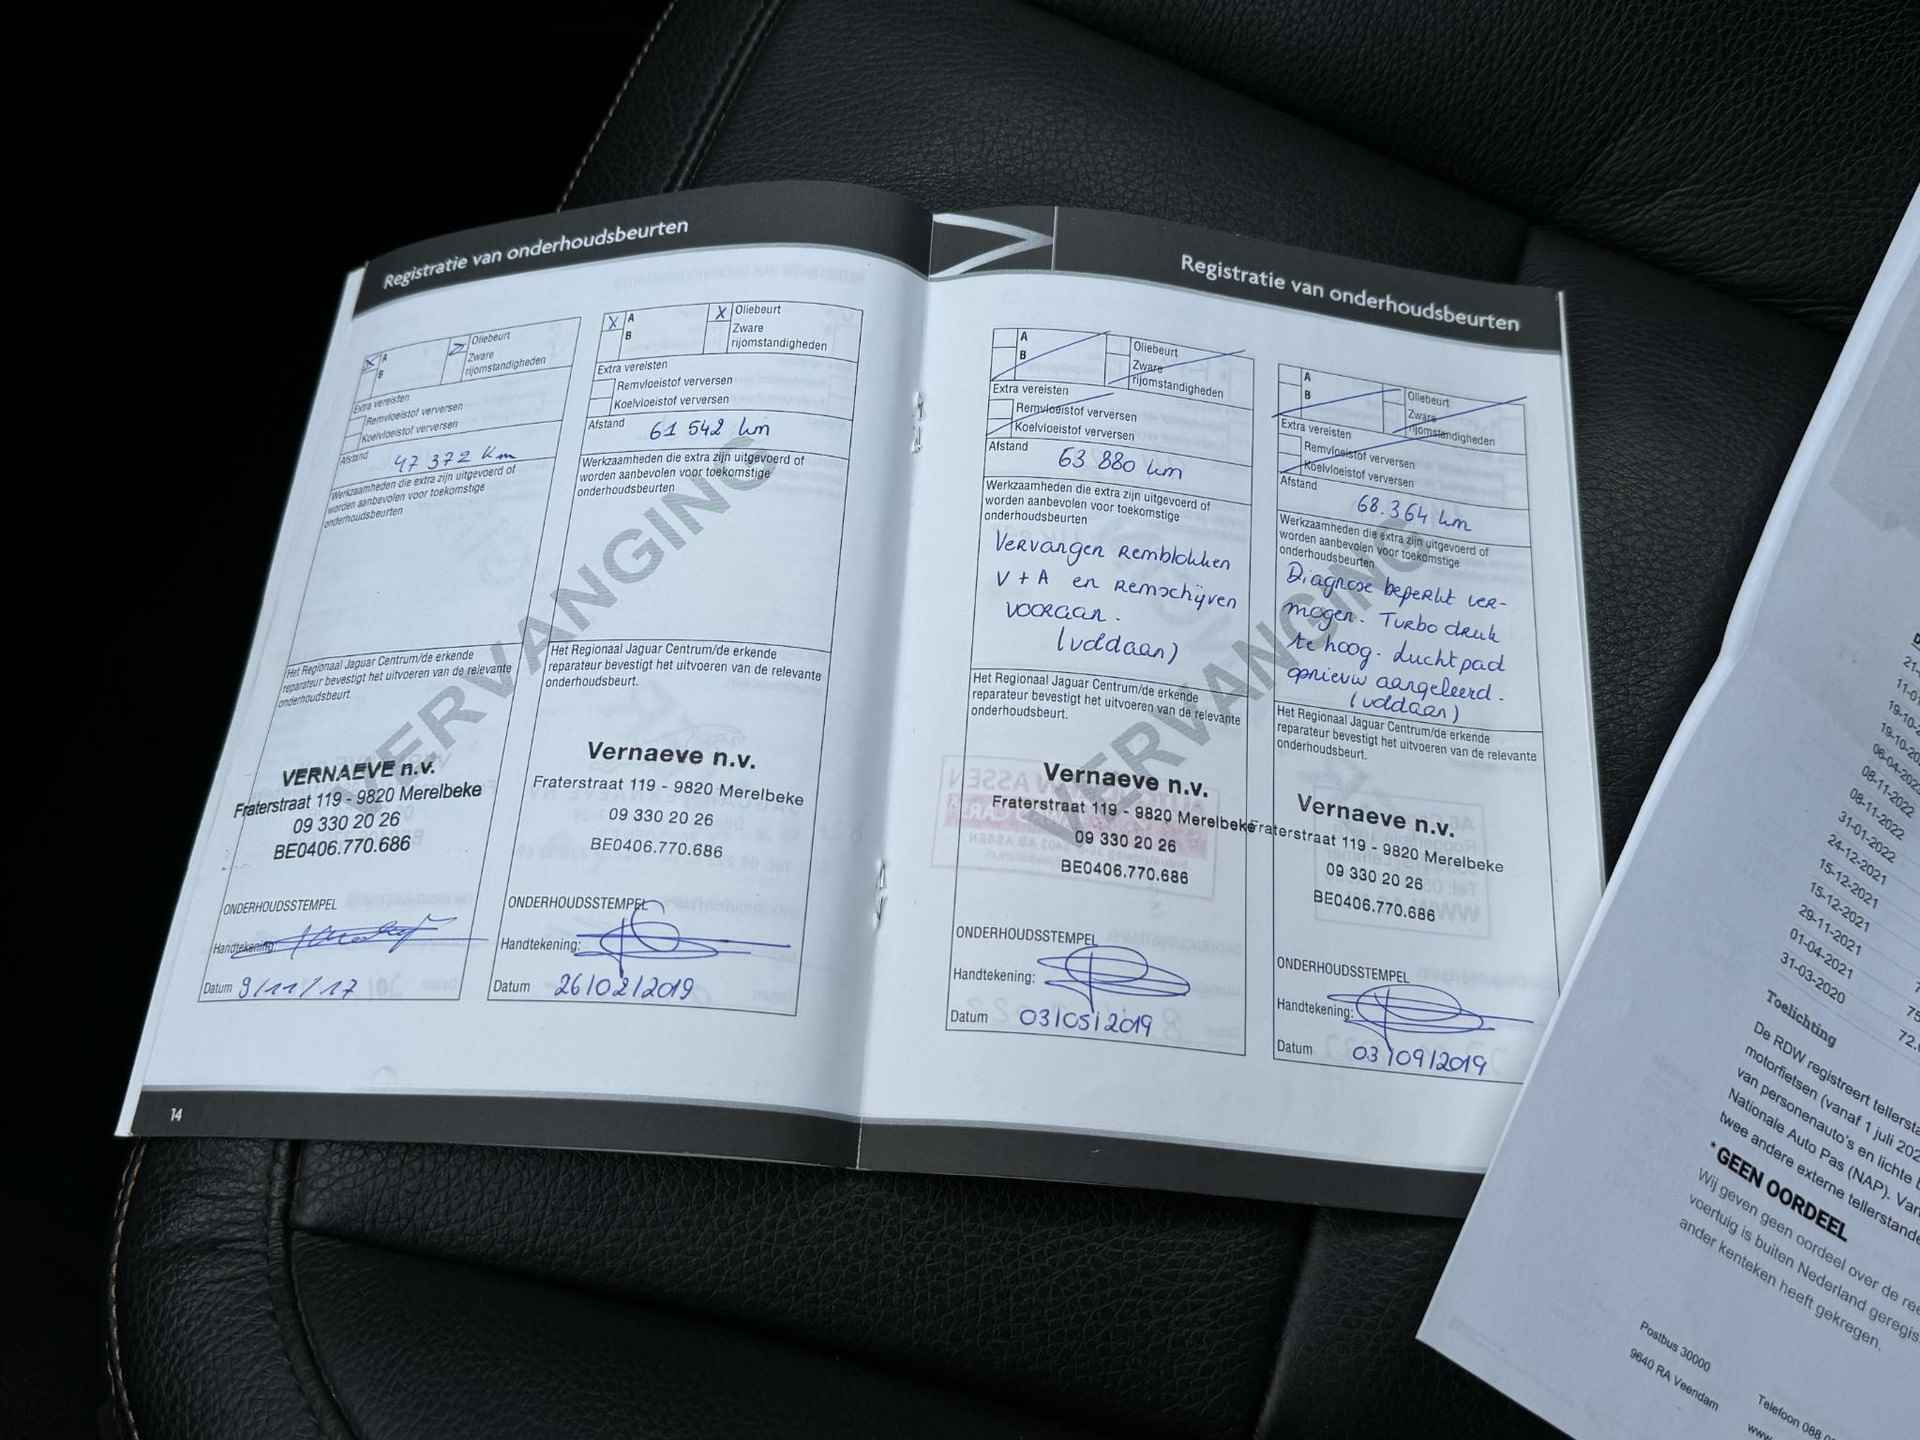 Registratie van onderhoudsbeurten
X A
B
Oliebeurt
Zware
rijomstandigheden
Extra vereisten
Remvloeistof verversen
Koelvloeistof verversen
Afstand 47 372 km
Werkzaamheden die extra zijn uitgevoerd of
worden aanbevolen voor toekomstige
onderhoudsbeurten
Het Regionaal Jaguar Centrum/de erkende
reparateur bevestigt het uitvoeren van de relevante
onderhoudsbeurt.
VERNAEVE n.v.
Fraterstraat 119 - 9820 Merelbeke
09 330 20 26
BE0406.770.686
ONDERHOUDSSTEMPEL
Handtekening:
Datum 9/11/17
X A
B
X Oliebeurt
Zware
rijomstandigheden
Extra vereisten
Remvloeistof verversen
Koelvloeistof verversen
Afstand 61 542 km
Werkzaamheden die extra zijn uitgevoerd of
worden aanbevolen voor toekomstige
onderhoudsbeurten
Het Regionaal Jaguar Centrum/de erkende
reparateur bevestigt het uitvoeren van de relevante
onderhoudsbeurt.
Vernaeve n.v.
Fraterstraat 119 - 9820 Merelbeke
09 330 20 26
BE0406.770.686
ONDERHOUDSSTEMPEL
Handtekening:
Datum 26/02/2019
VERVANGING
14
Registratie van onderhoudsbeurten
A
B
Oliebeurt
Zware
rijomstandigheden
Extra vereisten
Remvloeistof verversen
Koelvloeistof verversen
Afstand 63 880 km
Werkzaamheden die extra zijn uitgevoerd of
worden aanbevolen voor toekomstige
onderhoudsbeurten
Vervangen remblokken
V + A en remschijven
vooraan.
(voldaan)
Het Regionaal Jaguar Centrum/de erkende
reparateur bevestigt het uitvoeren van de relevante
onderhoudsbeurt.
Vernaeve n.v.
Fraterstraat 119 - 9820 Merelbeke
09 330 20 26
BE0406.770.686
ONDERHOUDSSTEMPEL
Handtekening:
Datum 03/05/2019
A
B
Oliebeurt
Zware
rijomstandigheden
Extra vereisten
Remvloeistof verversen
Koelvloeistof verversen
Afstand 68.364 km
Werkzaamheden die extra zijn uitgevoerd of
worden aanbevolen voor toekomstige
onderhoudsbeurten
Diagnose beperkt ver-
mogen. Turbo druk
te hoog. Luchtpad
opnieuw aangeleerd.
(voldaan)
Het Regionaal Jaguar Centrum/de erkende
reparateur bevestigt het uitvoeren van de relevante
onderhoudsbeurt.
Vernaeve n.v.
Fraterstraat 119 - 9820 Merelbeke
09 330 20 26
BE0406.770.686
ONDERHOUDSSTEMPEL
Handtekening:
Datum 03/09/2019
VERVANGING
08-11-2022
08-11-2022
31-01-2022
24-12-2021
15-12-2021
15-12-2021
29-11-2021
01-04-2021
31-03-2020
Toelichting
De RDW registreert
motorfietsen (vanaf 1 juli
van personenauto's en lichte
Nationale Auto Pas (NAP). Van
twee andere externe
* GEEN OORDEEL
Wij geven geen oordeel over de
voertuig is buiten Nederland
ander kenteken heeft gekregen.
Postbus 30000
9640 RA Veendam
Telefoon 088